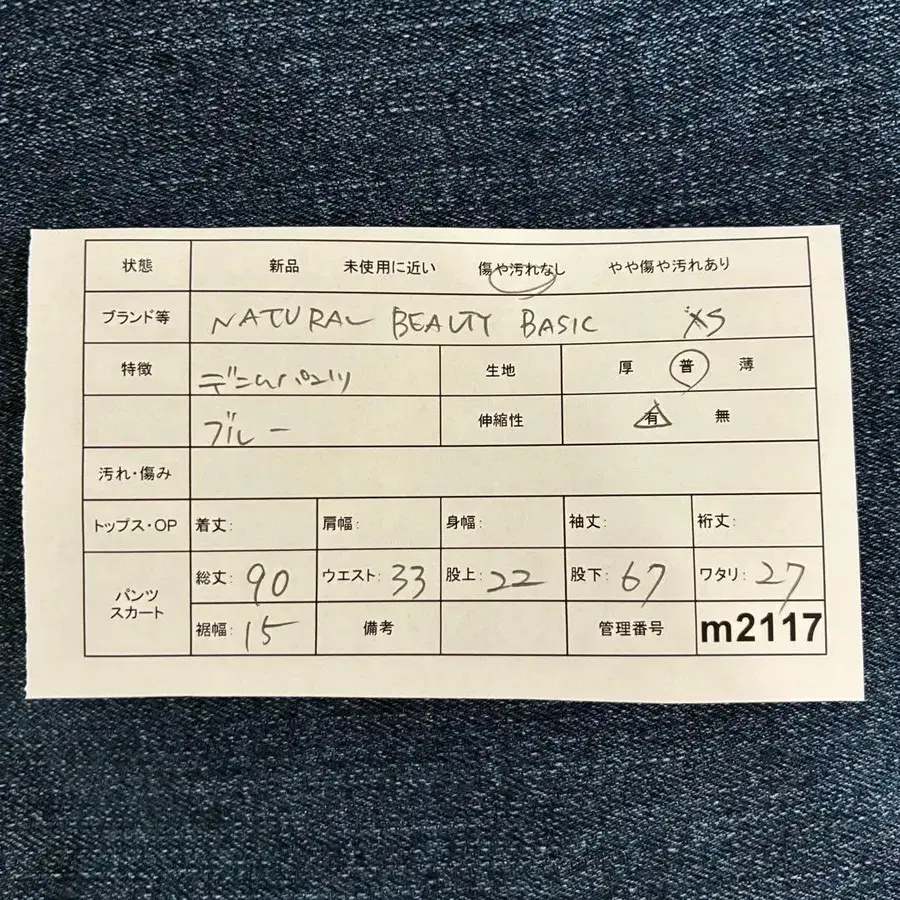 状態 新品 未使用に近い 傷や汚れなし やや傷や汚れあり
ブランド等 NATURAL BEAUTY BASIC XS
特徴 デニムパンツ 生地 厚 普 薄
ブルー 伸縮性 有 無
汚れ・傷み
トップス・OP 着丈: 肩幅: 身幅: 袖丈: 裄丈:
パンツ スカート 総丈: 90 ウエスト: 33 股上: 22 股下: 67 ワタリ: 27
裾幅: 15 備考 管理番号 m2117